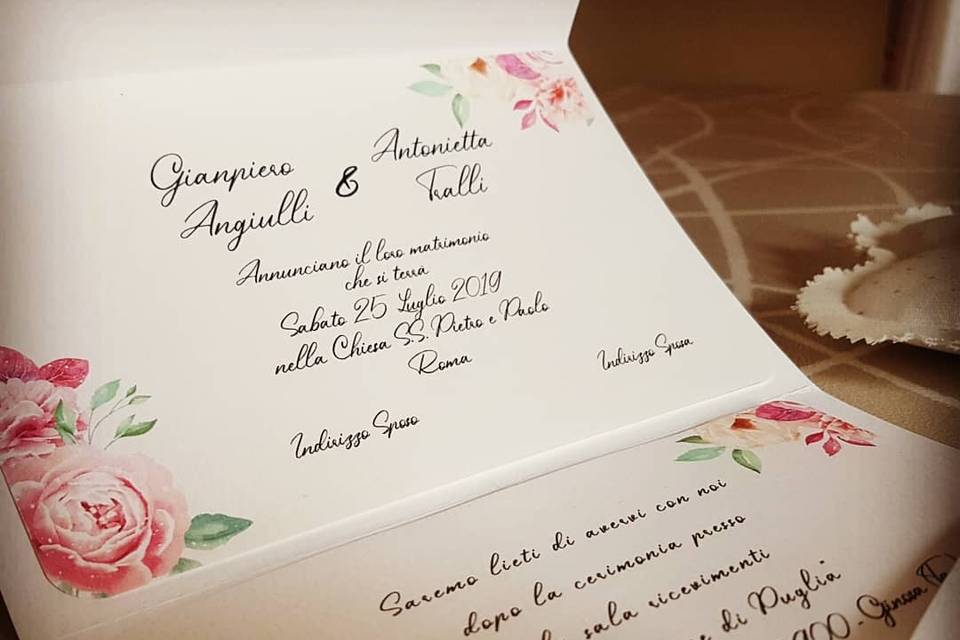 Gianpiero
Angiulli
&
Antonietta
Tralli
Annunciano il loro matrimonio
che si terrà
Sabato 25 Luglio 2019
nella Chiesa S.S. Pietro e Paolo
Roma
Indirizzo Sposa
Indirizzo Sposo
Saremo lieti di avervi con noi
dopo la cerimonia presso
sala ricevimenti
di Puglia
Ginosa